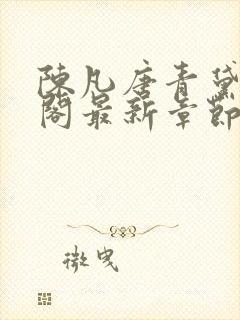 陳凡唐青黛
閣最新章節
微曳